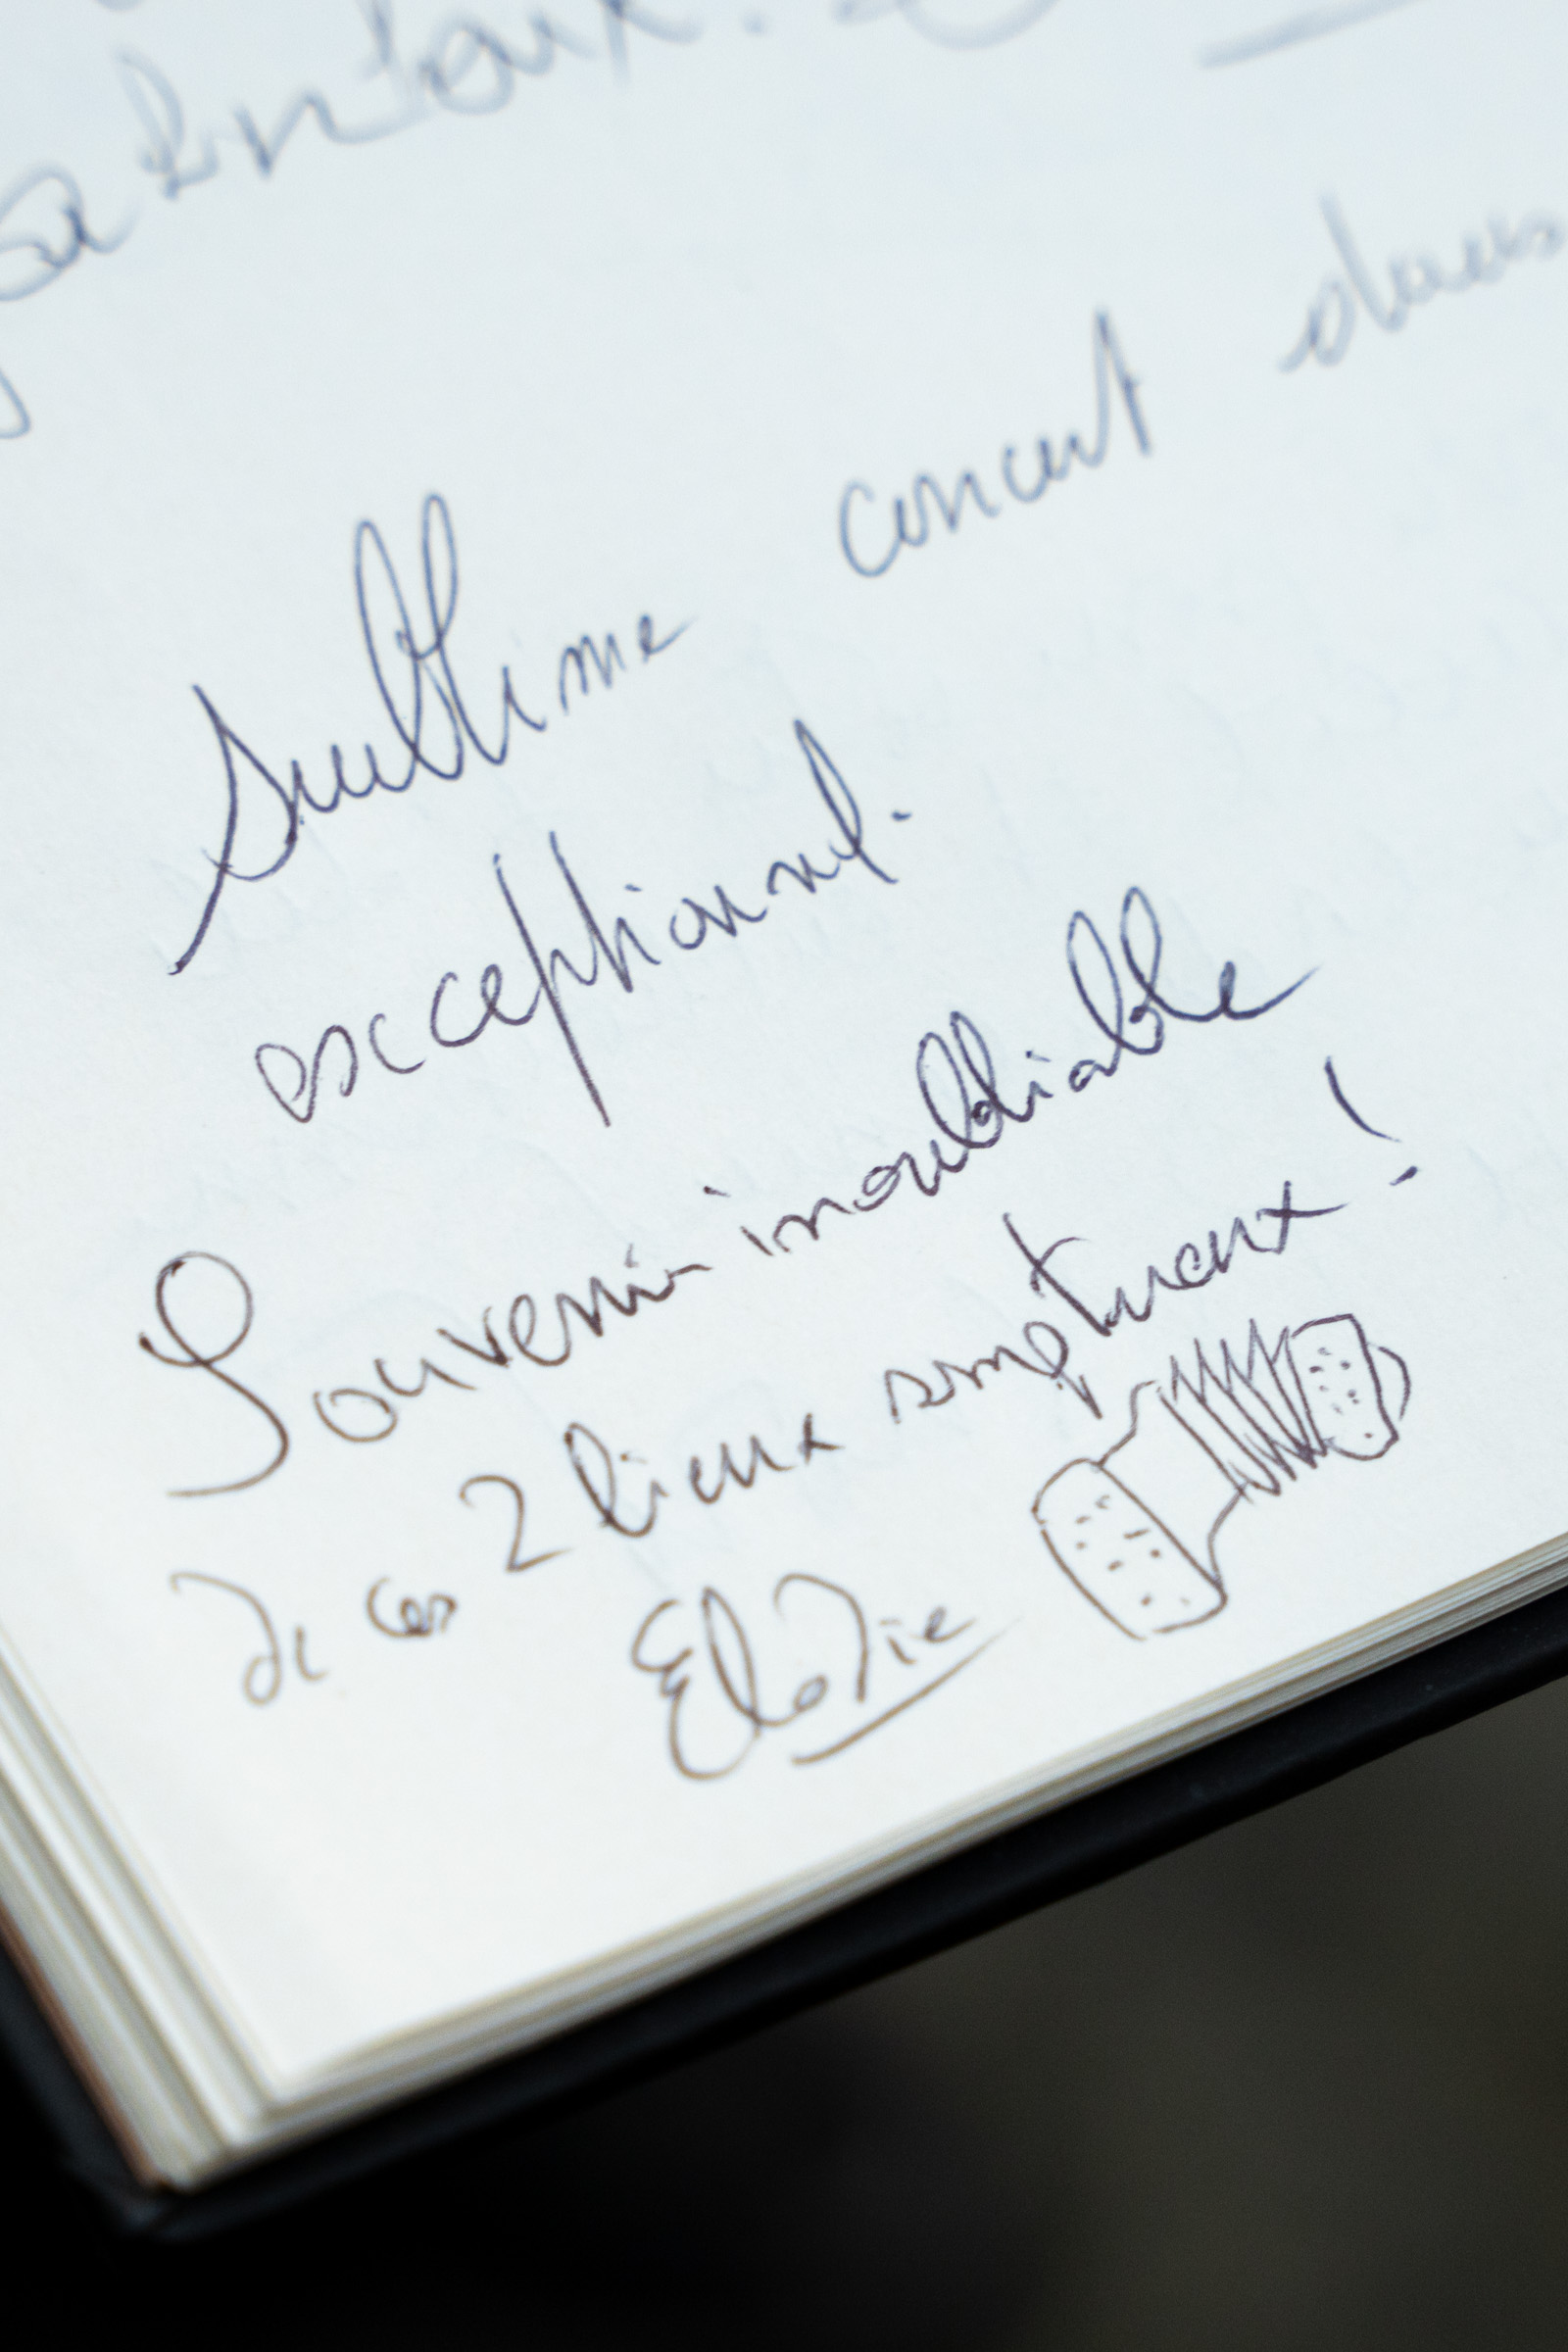 Sublime concert dans
exceptionnel.
Souvenir inoubliable
de ces 2 lieux somptueux !
Elodie